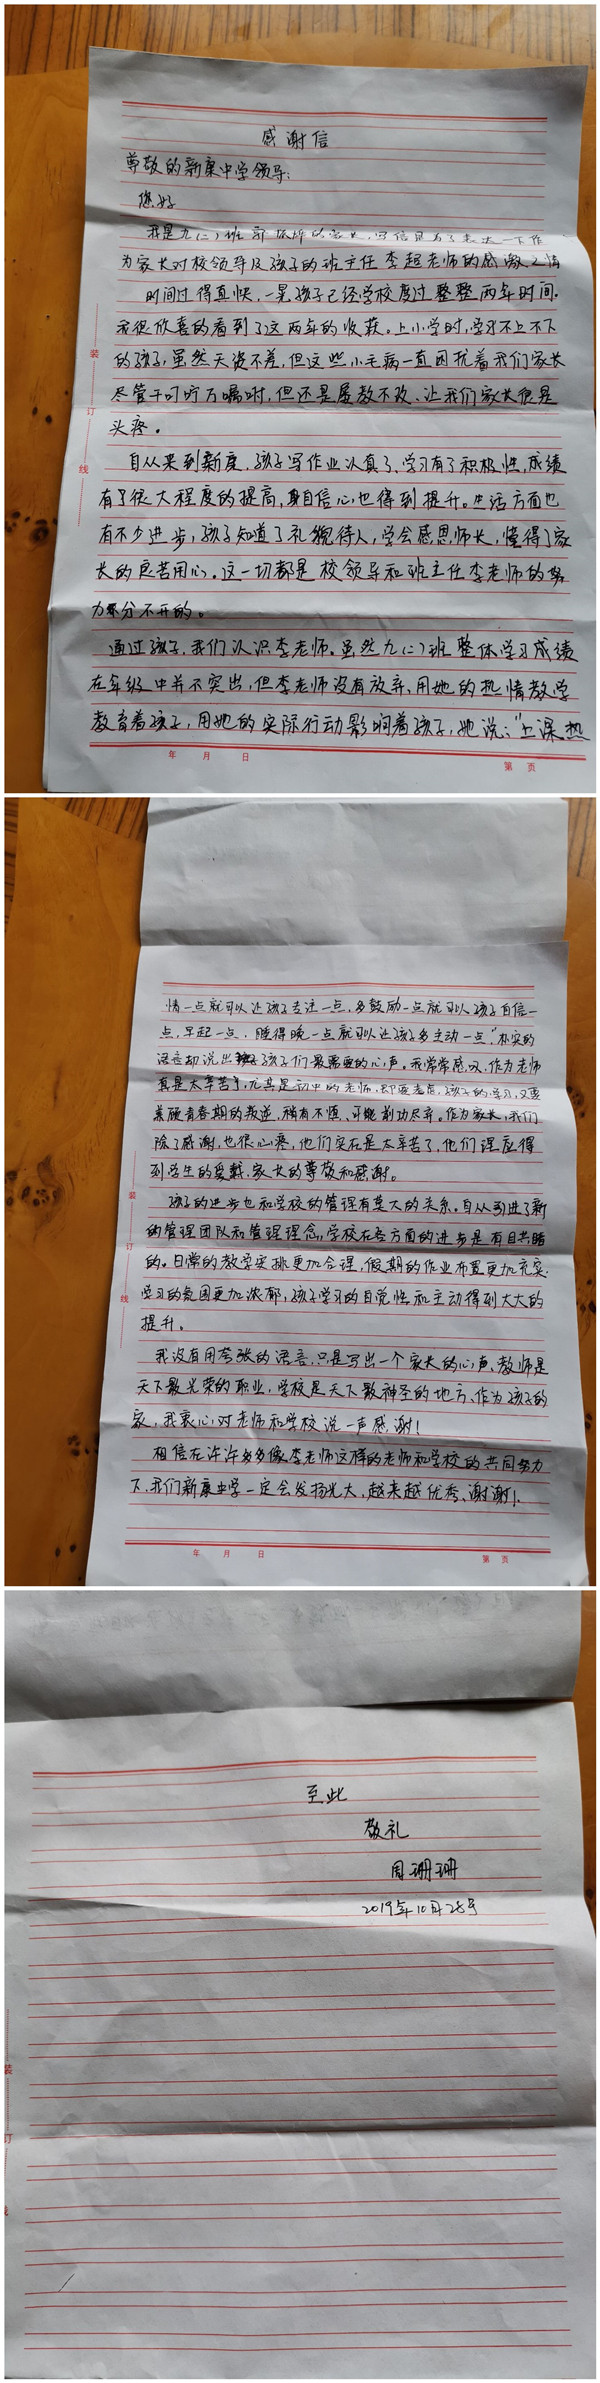 感谢信
尊敬的新康中学领导：
您好
我是九(二)班 的家长，写信是为了表达一下作
为家长对校领导及孩子的班主任李超老师的感激之情
时间过得真快，一晃孩子已经学校度过整整两年时间。
我很欣喜的看到了这两年的收获。上小学时，学习不上不下
的孩子，虽然天资不差，但这些小毛病一直困扰着我们家长
尽管千叮咛万嘱咐，但还是屡教不改、让我们家长很是
头疼。
自从来到新康，孩子写作业认真了、学习有了积极性，成绩
有了很大程度的提高，自信心也得到提升。生活方面也
有不少进步，孩子知道了礼貌待人，学会感恩师长，懂得了家
长的良苦用心。这一切都是校领导和班主任李老师的努
力分不开的。
通过孩子，我们认识李老师。虽然九(二)班整体学习成绩
在年级中并不突出，但李老师没有放弃、用她的热情教学
教育着孩子，用她的实际行动影响着孩子，她说："上课热
年 月 日
第 页
装
订
线
情一点就可以让孩子专注一点，多鼓励一点就可以孩子自信一
点，早起一点、睡得晚一点就可以让孩子多主动一点"朴实的
语言却说出孩子们最需要的心声。我常常感叹，作为老师
真是太辛苦了，尤其是初中的老师，即要考虑孩子的学习，又要
兼顾青春期的叛逆，稍有不慎、可能前功尽弃。作为家长，我们
除了感谢，也很心疼，他们实在是太辛苦了，他们理应得
到学生的爱戴、家长的尊敬和感谢。
孩子的进步也和学校的管理有莫大的关系。自从引进了新
的管理团队和管理理念，学校在各方面的进步是有目共睹
的。日常的教学安排更加合理，假期的作业布置更加充实
学习的氛围更加浓郁，孩子学习的自觉性和主动得到大大的
提升。
我没有用夸张的语言，只是写出一个家长的心声、教师是
天下最光荣的职业，学校是天下最神圣的地方、作为孩子的
家，我衷心对老师和学校说一声感谢！
相信在许许多多像李老师这样的老师和学校的共同努力
下、我们新康中学一定会发扬光大，越来越优秀、谢谢！
年 月 日
第 页
装
订
线
至此
敬礼
周珊珊
2019年10月28号
装
订
线